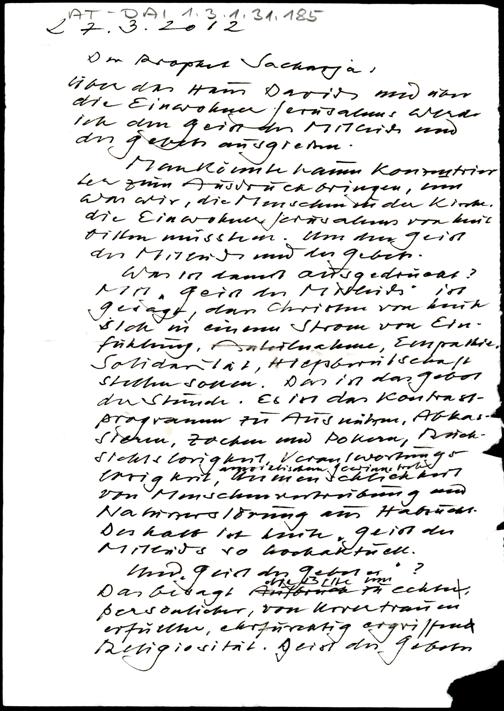 AT-DAI 1.3.1.31.185
27.3.2012
Der Prophet Sacharja:
Über das Haus Davids und über
die Einwohner Jerusalems werde
ich den Geist des Mitleids und
des Gebets ausgießen.
Man könnte kaum konzentrier
ter zum Ausdruck bringen, um
was wir, die Menschen in der Kirche,
die Einwohner Jerusalems von heute
bitten müssten. Um den Geist
des Mitleids und des Gebets.
Was ist damit ausgedrückt?
Mit "Geist des Mitleids" ist
gesagt, dass Christen von heute
sich in einem Strom von Ein-
fühlung, Anteilnahme, Empathie,
Solidarität, Hilfsbereitschaft
stellen sollen. Das ist das Gebot
der Stunde. Es ist das Kontrast-
programm zu Ausnützen, Abkas-
sieren, Zocken und Pokern, Rück-
sichtslosigkeit, Verantwortungs
losigkeit, Unmenschlichkeit
von Menschenvertreibung und
Naturzerstörung aus Habsucht.
Deshalb ist heute "Geist des
Mitleids" so hochaktuell.
Und "Geist des Gebetes"?
die Bitte um
Das besagt Aufbruch zu echter,
persönlicher, von Urvertrauen
erfüllter, ehrfürchtig ergriffener
Religiosität. Geist des Gebetes